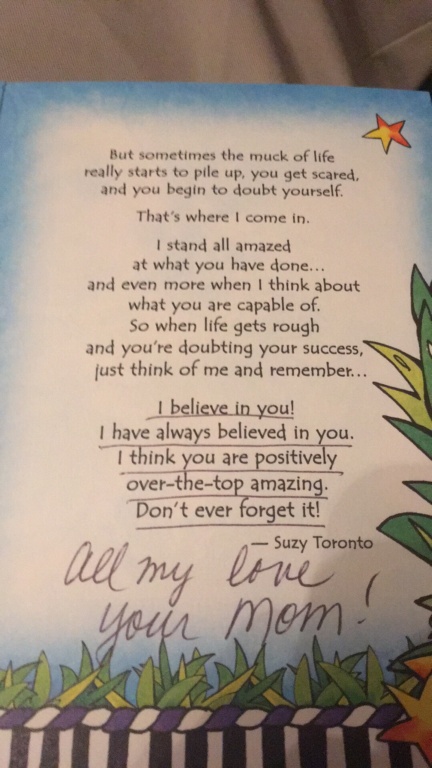 But sometimes the muck of life
really starts to pile up, you get scared,
and you begin to doubt yourself.
That's where I come in.
I stand all amazed
at what you have done...
and even more when I think about
what you are capable of.
So when life gets rough
and you're doubting your success,
just think of me and remember...
I believe in you!
I have always believed in you.
I think you are positively
over-the-top amazing.
Don't ever forget it!
— Suzy Toronto
All my love
your Mom!